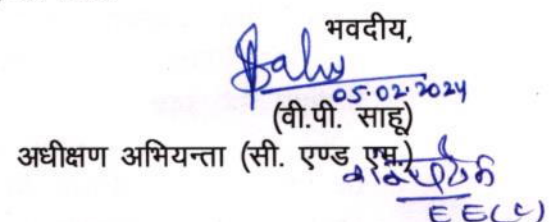 भवदीय,
Sahu
05.02.2024
(वी.पी. साहू)
अधीक्षण अभियन्ता (सी. एण्ड एम.)
E E (C)